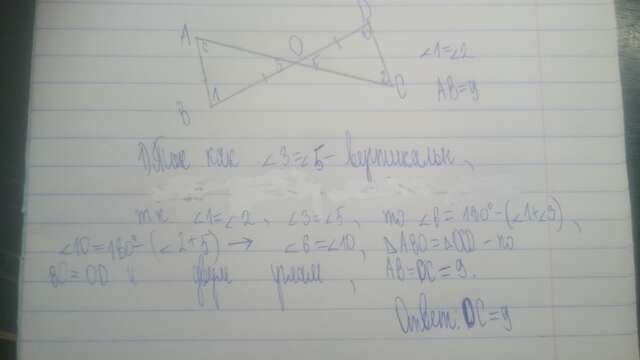 A
D
O
B
1
2
C
∠1=∠2
AB=9
1) Так как ∠3=∠5 - вертикальн,
тк ∠1=∠2, ∠3=∠5, то ∠6=180°-(∠1+∠3),
∠10=180°-(∠2+5) → ∠6=∠10, △ABO=△OCD - по
BO=OD и двум углам, AB=DC=9.
Ответ: DC=9